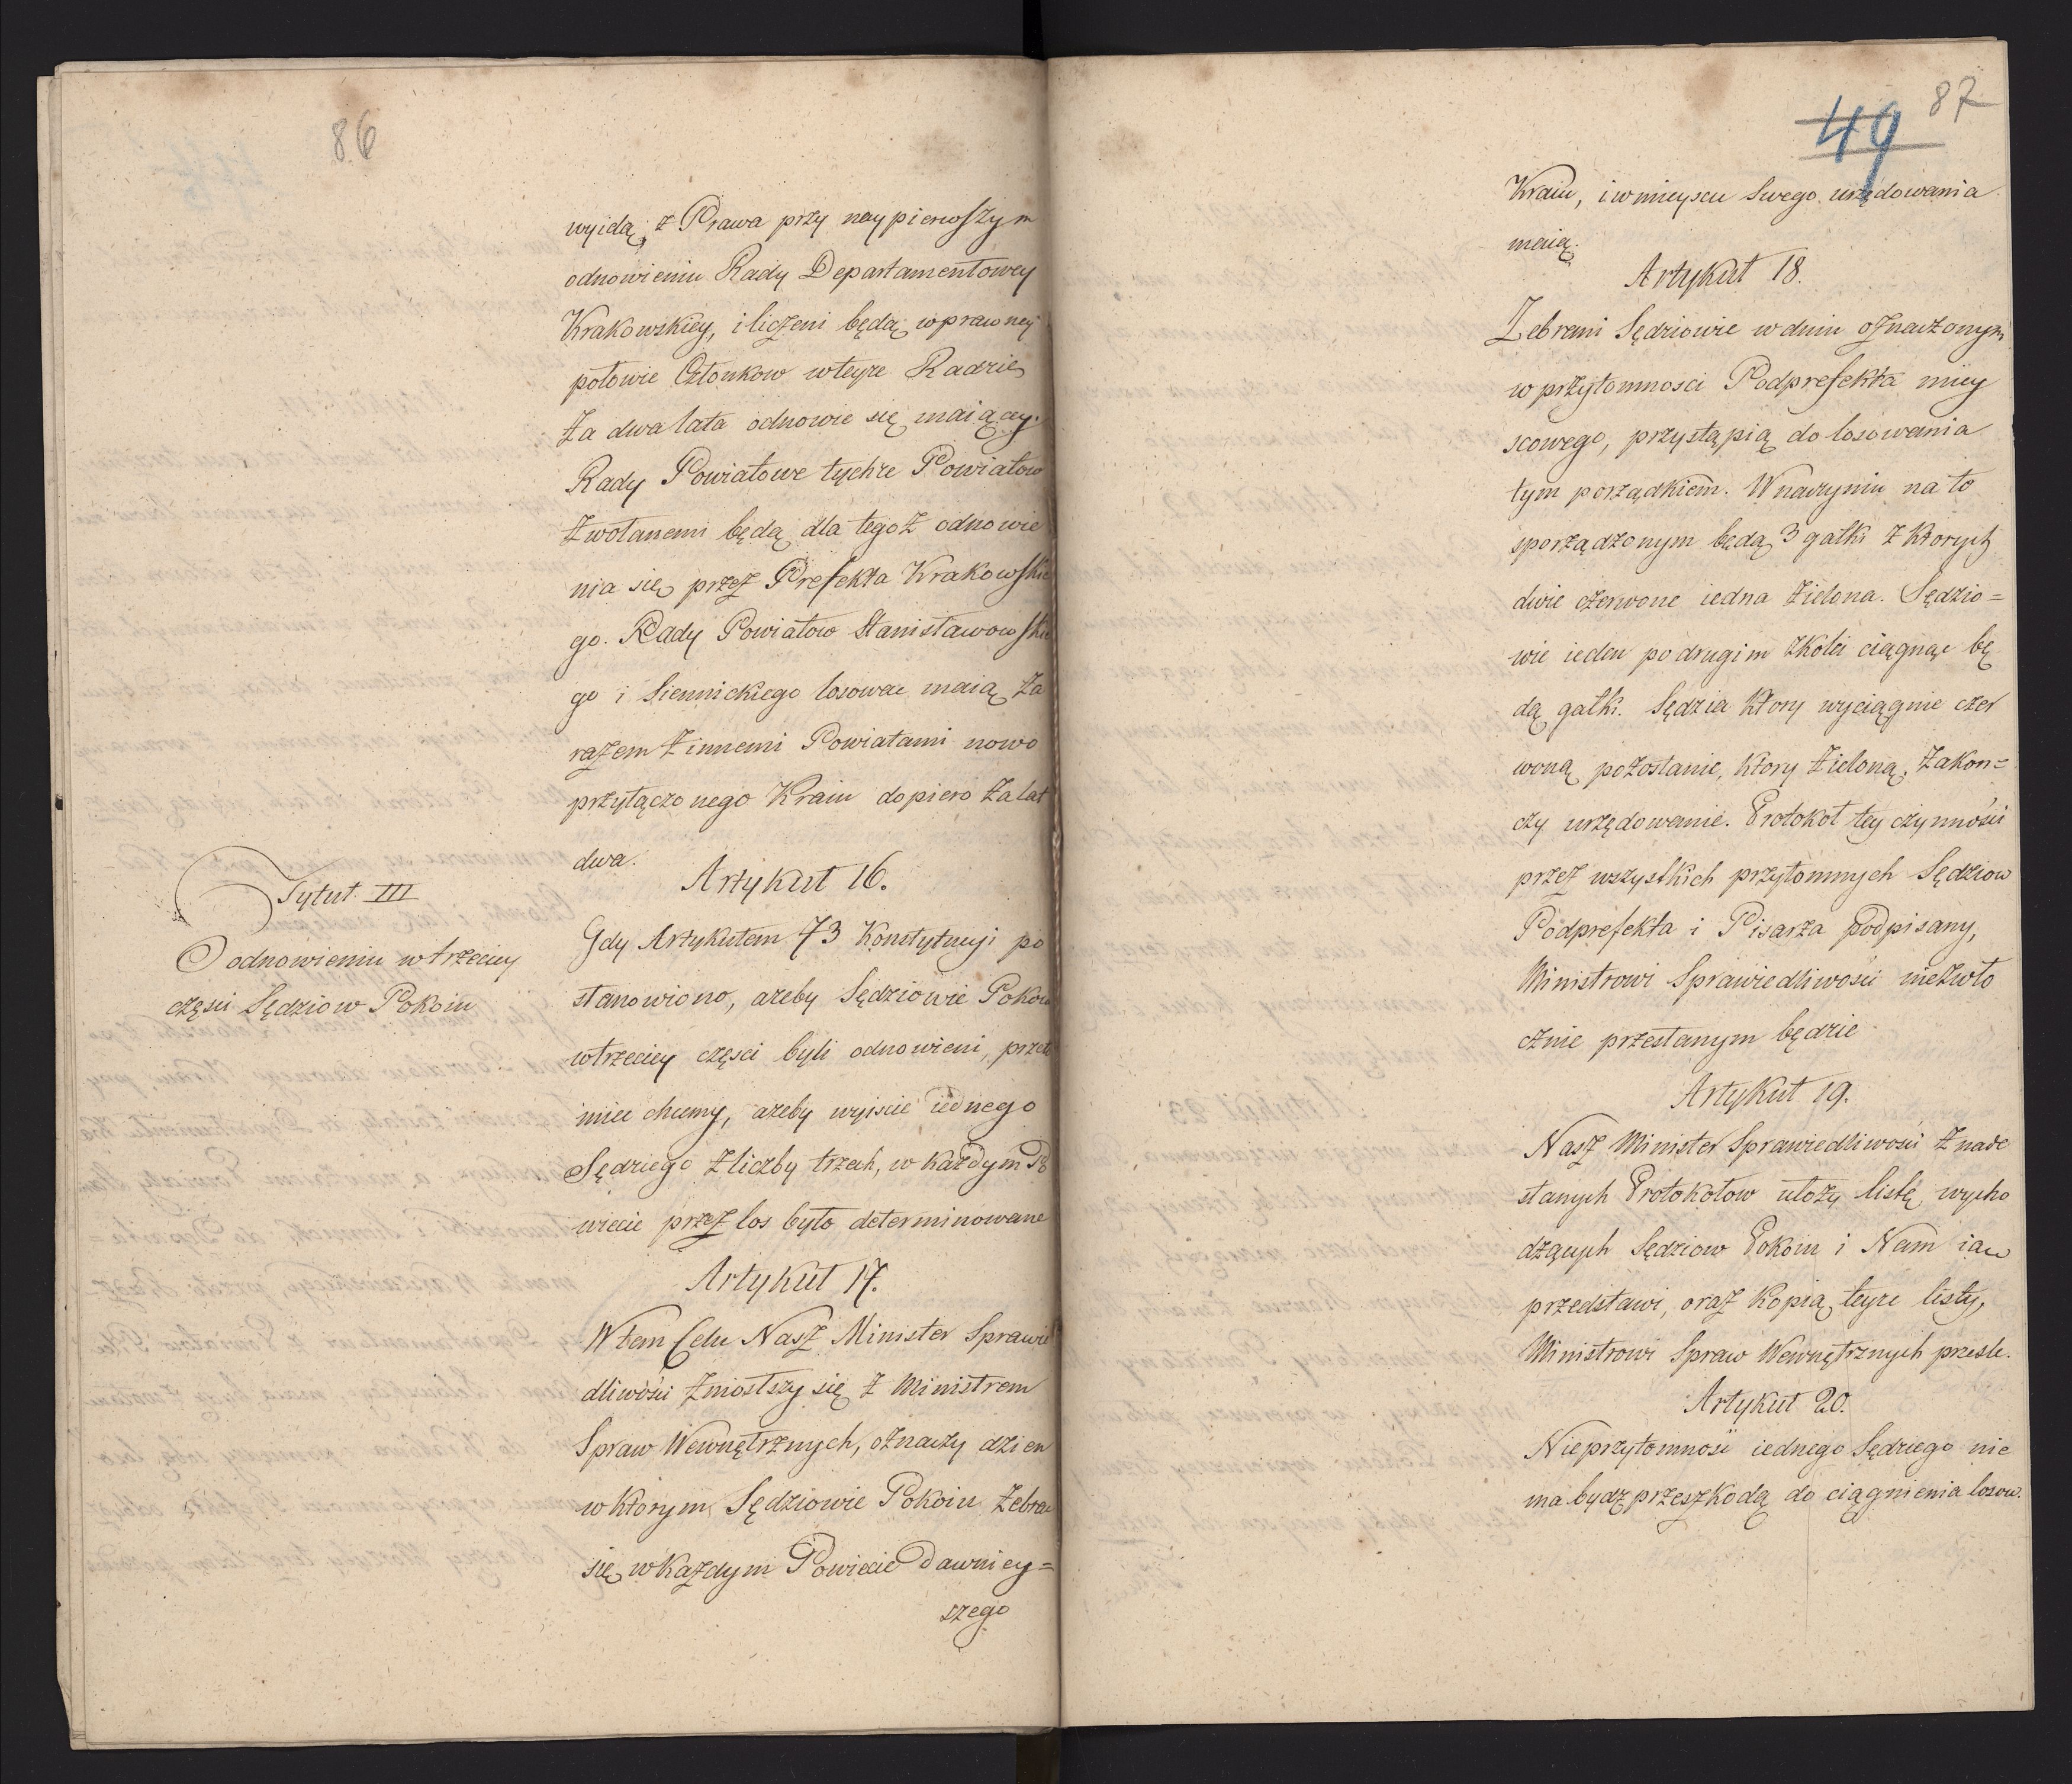 86
wyidą z Prawa przy naypierwszym
odnowieniu Rady Departamentowey
Krakowskiey, i liczeni będą wprawney
połowie Członkow wteyże Radzie
za dwa lata odnowie się maiącey.
Rady Powiatowe tychże Powiatow
zwołanemi będą dla tegoż odnowie
nia się przez Prefekta Krakowskie
go. Rady Powiatow Stanisławowskie
go i Siennickiego losowac maią za
razem z innemi Powiatami nowo
przyłączonego Kraiu dopiero za lat
dwa.
Artykuł 16.
Tytuł III
O odnowieniu w trzeciey
częsci Sędziow Pokoiu
Gdy Artykułem 73 Konstytucyi po
stanowiono, ażeby Sędziowie Pokoiu
wtrzeciey częsci byli odnowieni, przeto
miec chcemy, ażeby wyiscie iednego
Sędziego z liczby trzech, w każdym Po
wiecie przez los było determinowane
Artykuł 17.
W tem Celu Nasz Minister Sprawie
dliwości zniosłszy się z Ministrem
Spraw Wewnętrznych, oznaczy dzien
w ktorym Sędziowie Pokoiu zebrac
się w każdym Powiecie dawniey=
szego
87
49
Kraiu, i w mieyscu swego urzędowania
maią.
Artykuł 18.
Zebrani Sędziowie w dniu oznaczonym
w przytomnosci Podprefekta miey
scowego, przystąpią do losowania
tym porządkiem. W naczyniu na to
sporządzonym będą 3 gałki z ktorych
dwie czerwone iedna zielona. Sędzio=
wie ieden po drugim z kolei ciągnąc bę
dą gałki. Sędzia ktory wyciągnie czer
woną pozostanie, ktory zieloną, zakon=
czy urzędowanie. Protokoł tey czynności
przez wszystkich przytomnych Sędziow
Podprefekta i Pisarza podpisany,
Ministrowi Sprawiedliwości niezwło
cznie przesłanym będzie
Artykuł 19.
Nasz Minister Sprawiedliwości z nade
słanych Protokołow ułoży listę wycho
dzących Sędziow Pokoiu i Nam ią
przedstawi, oraz kopią teyże listy,
Ministrowi Spraw Wewnętrznych przesle.
Artykuł 20.
Nieprzytomność iednego Sędziego nie
ma bydz przeszkodą do ciągnienia losow.